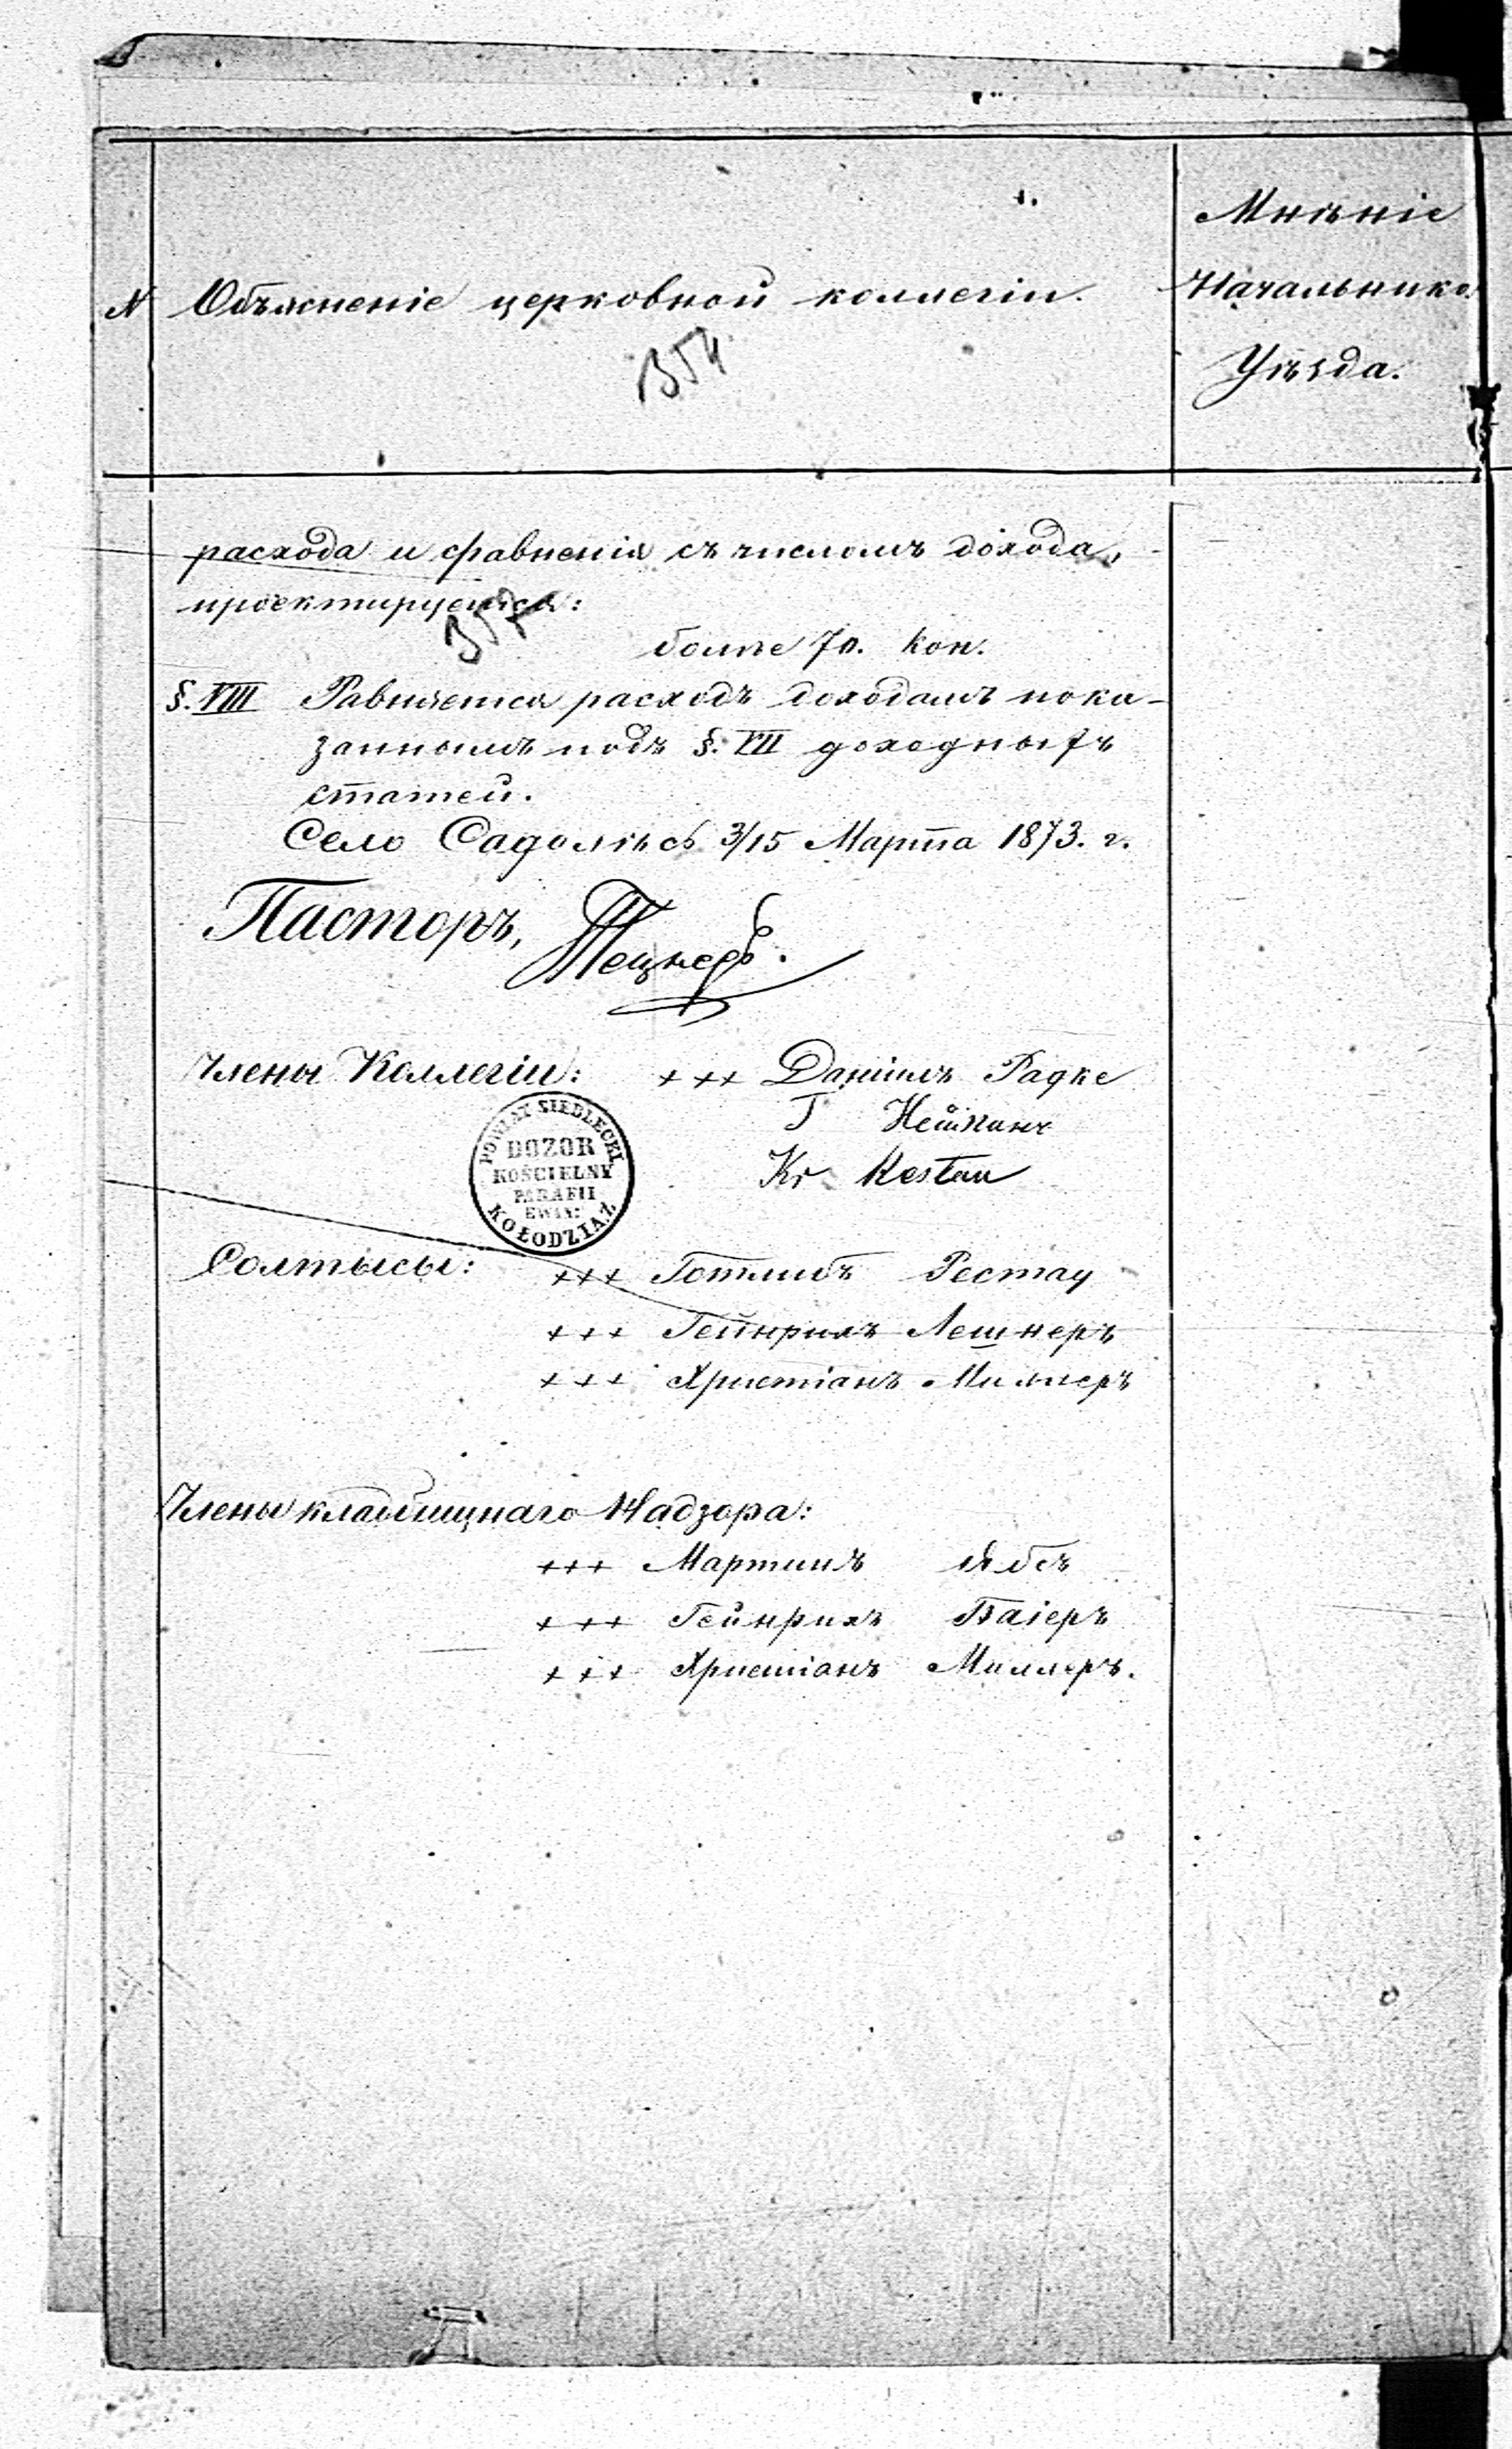 Мнѣніе
Начальника
Уѣзда.
N Объясненіе церковной коллегіи.
354
расхода и сравненія съ числомъ дохода,
проектируется:
болѣе 70. коп.
§. VIII Равняется расходъ доходамъ пока-
заннымъ подъ §. VII доходныхъ
статей.
Село Садолѣсь 3/15 Марта 1873. г.
Пасторъ,
Члены Коллегіи: +++ Даніилъ Радке
Г Нейманъ
Kr Restau
POWIAT SIEDLECKI
DOZOR
KOŚCIELNY
PARAFII
EWAN:
KOŁODZIĄŻ
Солтысы: +++ Готлибъ Рестау
+++ Гейнрихъ Лешнеръ
+++ Христіанъ Миллеръ
Члены кладбищнаго Надзора:
+++ Мартинъ Ябсъ
+++ Гейнрихъ Баіеръ
+++ Христіанъ Миллеръ.